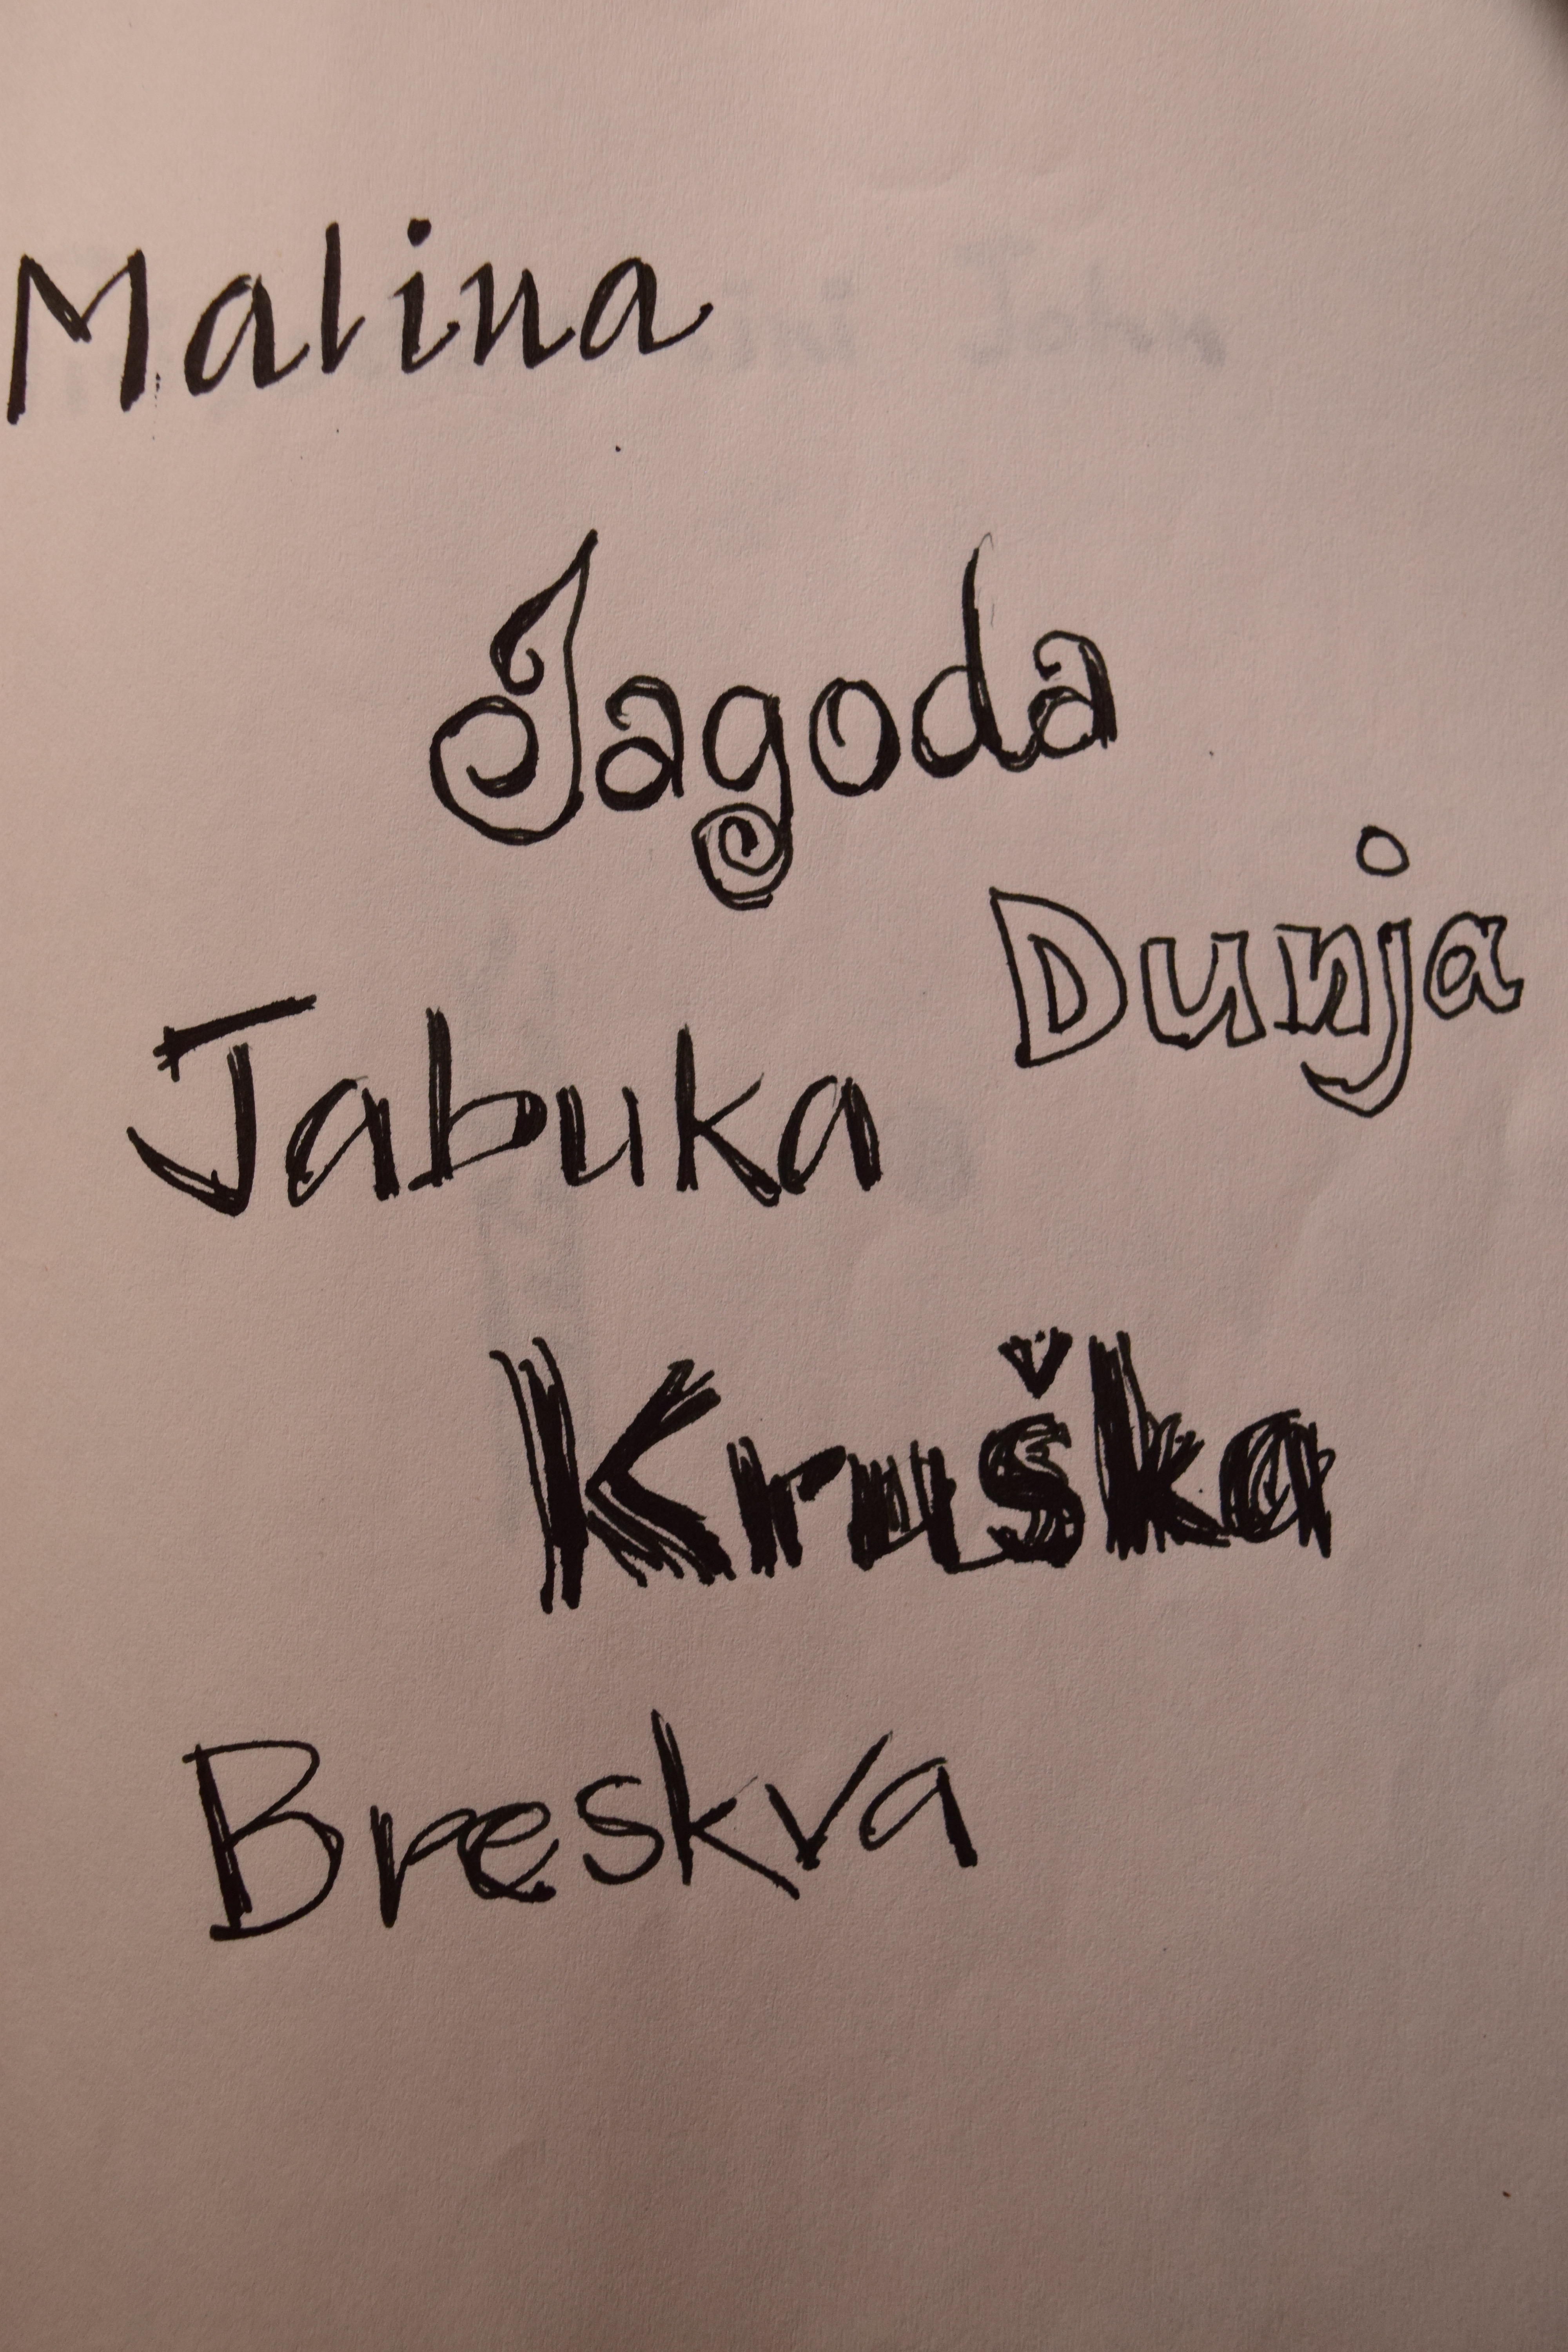 Malina
Jagoda
Dunja
Jabuka
Kruška
Breskva